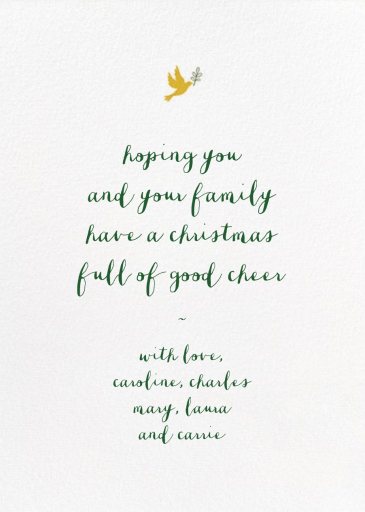 hoping you
and your family
have a christmas
full of good cheer
~
with love,
caroline, charles
mary, laura
and carrie